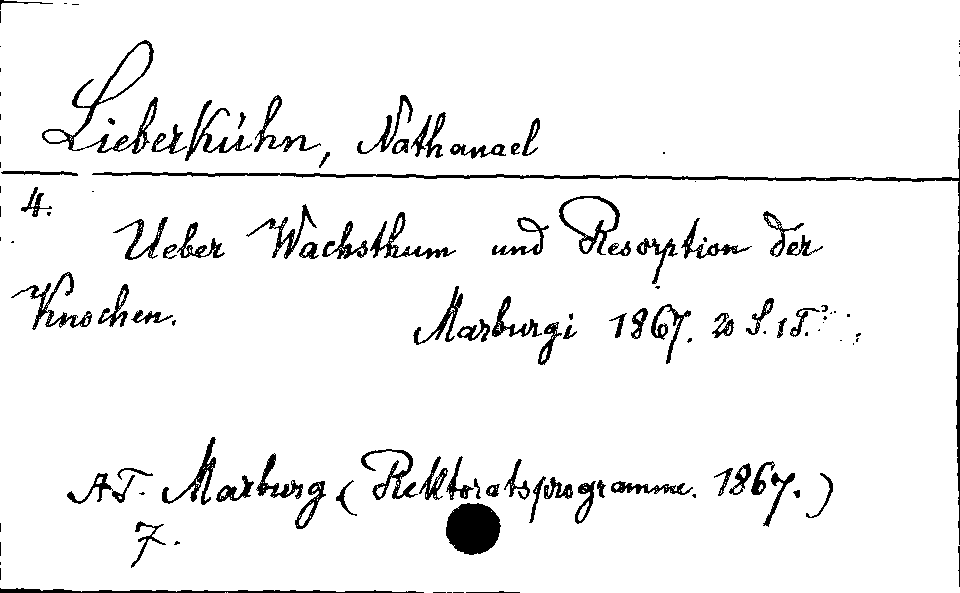 Lieberkühn, Nathanael
4.
Ueber Wachsthum und Resorption der
Knochen.
Marburgi 1867. 20 S. 1 T.
AT. Marburg (Rektoratsprogramme. 1867.)
7.